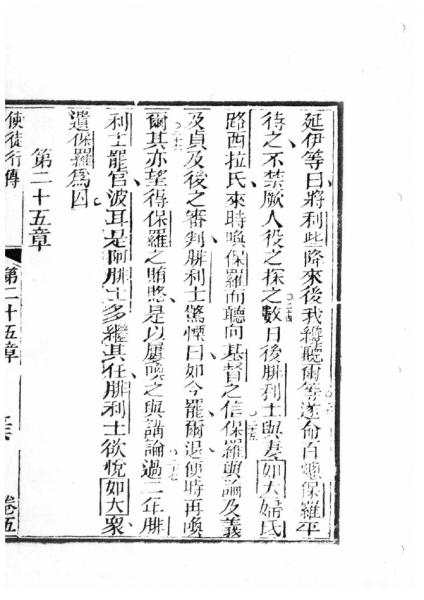 延伊等曰將利些降來後我纔聽爾等遂俞百總保羅平
待之不禁厥人役之探之數日後腓利士與妻如大婦氏
○二十四
路西拉氏來時喚保羅而聽向基督之信保羅與論及義
○二十五
及貞及後之審判腓利士驚慄曰如今罷爾退便時再喚
○二十六
爾其亦望得保羅之賄賂是以屢喚之與講論過二年腓
○二十七
利士罷官波耳是阿腓士多繼其任腓利士欲悅如大眾
遺保羅為囚
第二十五章
使徒行傳
第二十五章
卷五